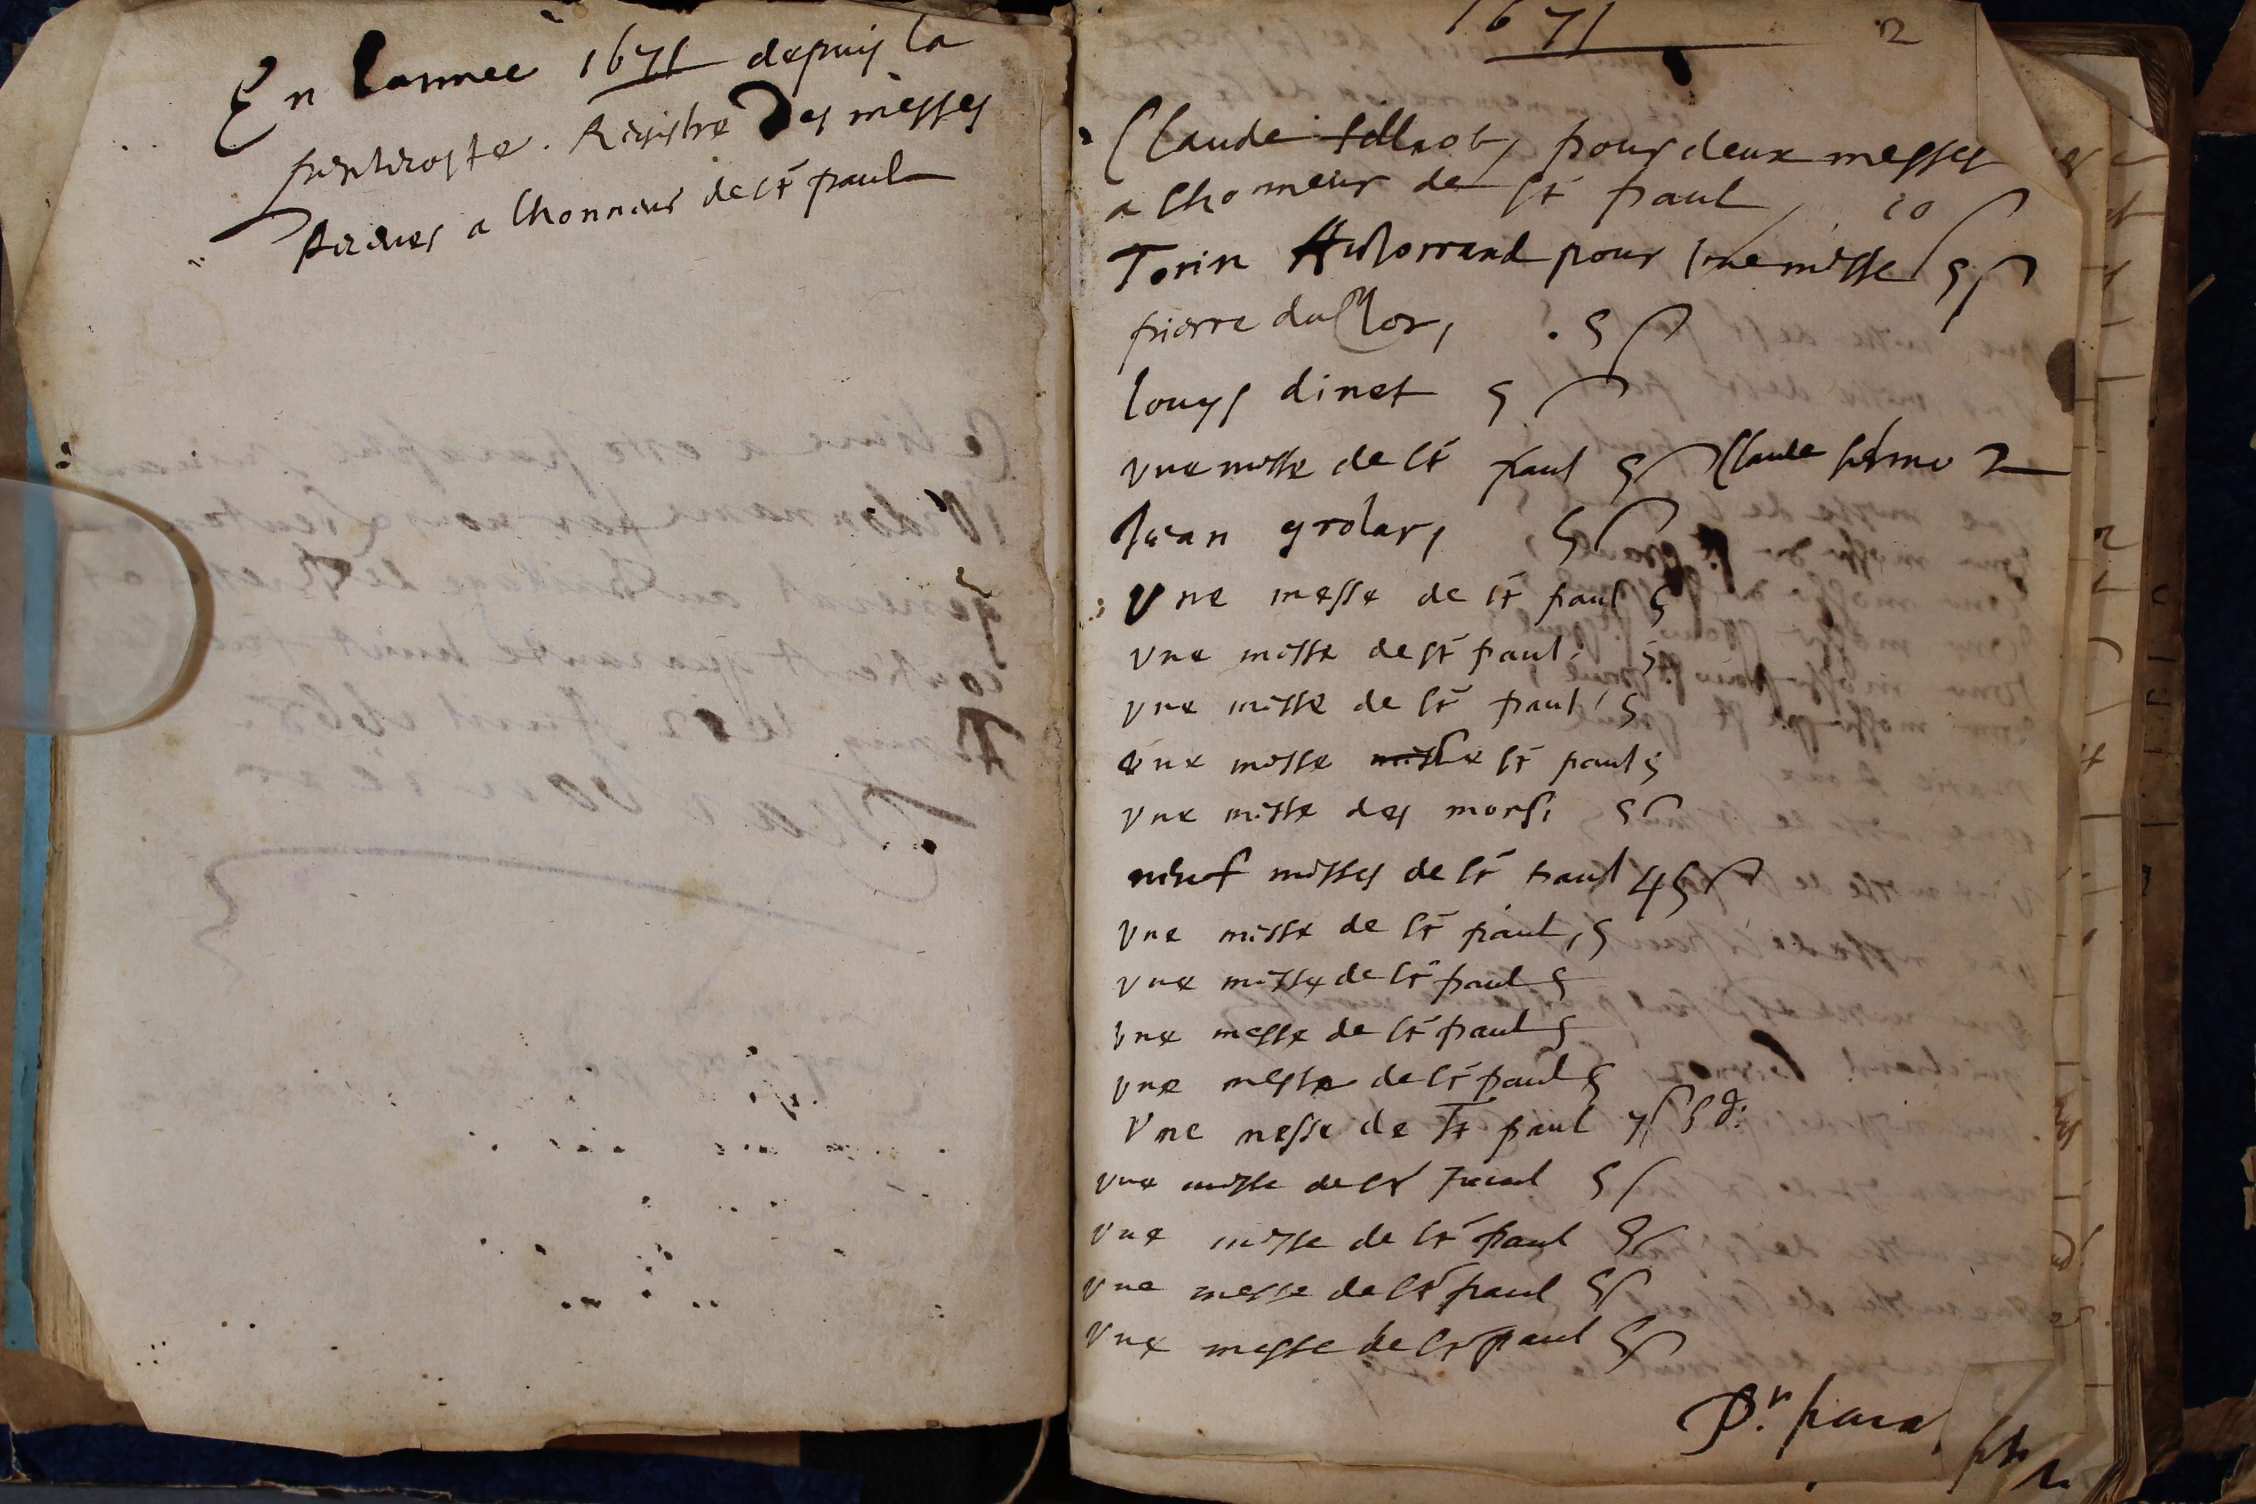 En lannee 1671 depuis la
pentecoste. Registre des messes
receues a lhonneur de st paul
1671
2
Claude pour deux messes
a lhonneur de st paul, 10 s
Torin pour une messe 5 s
pierre du 5 s
louys dinet 5 s
vne messe de st paul 5 s Claude
Jean grolar, 5 s
Vne messe de st paul 5
vne messe de st paul. 5
vne messe de st paul 5
vne messe messe st paul 5
vne messe des mors, 5 s
neuf messes de st paul 45 s
vne messe de st paul, 5
vne messe de st paul 5
vne messe de st paul 5
vne messe de st paul 5
Vne messe de st paul 7 s 5 d:
vne messe de st paul 5 s
vne messe de st paul 5 s
vne messe de st paul 5 s
vne messe de st paul 5 s
Pr.